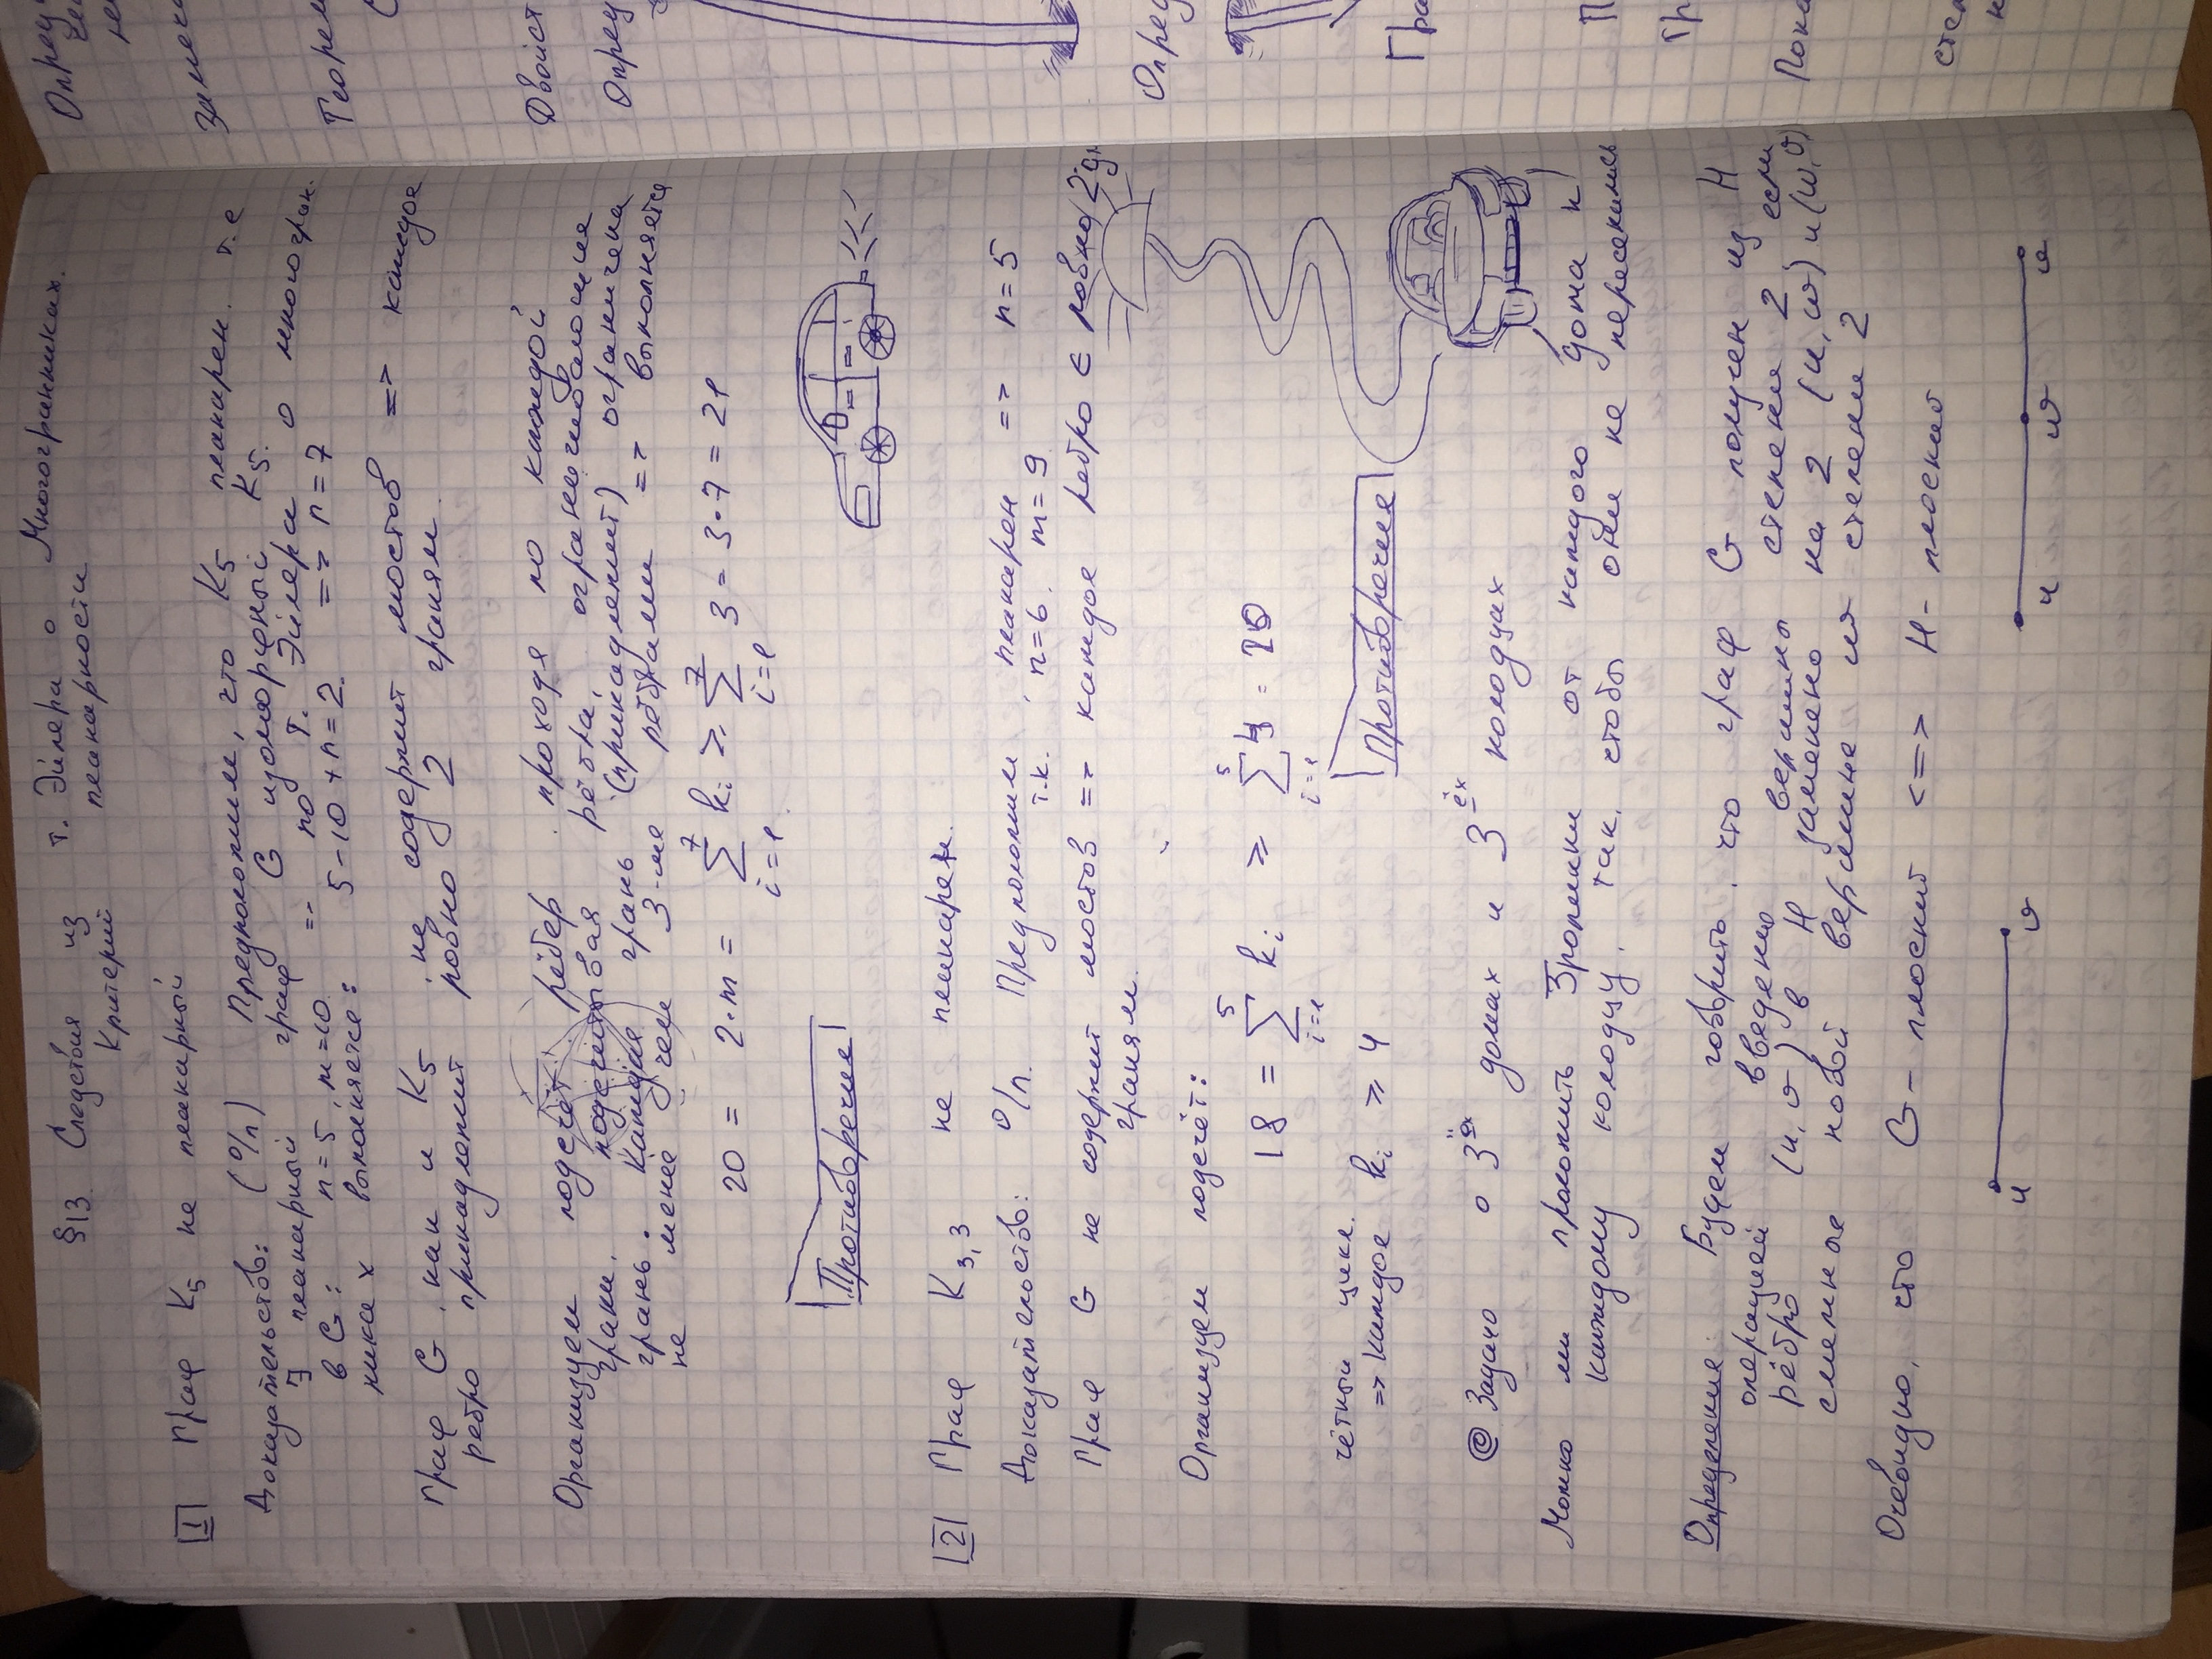 §13. Следствия из т. Эйлера о Многогранниках.
Критерий планарности
1 Граф K5 не планарный
Доказательство: (О/п) Предположим, что K5 планарен. т.е
∃ планарный граф G изоморфный K5.
в G: n=5, m=10. => по т. Эйлера о многогран-
никах выполняется: 5-10+r=2. => r=7
Граф G, как и K5, не содержит мостов => каждое
ребро принадлежит ровно 2 граням.
Организуем подсчёт рёбер, проходя по каждой
грани. подсчитывая рёбра, ограничивающие
грань. Каждая грань (принадлежит) ограничена
не менее чем 3-мя рёбрами => выполняется
20 = 2·m = ∑ i=1 7 ki ≥ ∑ i=1 7 3 = 3·7 = 21
Противоречие
2 Граф K3,3 не планарен.
Доказательство: О/п. Предположим, планарен => r=5
т.к. n=6, m=9
Граф G не содержит мостов => каждое ребро ∈ ровно 2
граням.
Организуем подсчёт:
18 = ∑ i=1 5 ki ≥ ∑ i=1 5 4 = 20
чётный цикл.
=> каждое ki ≥ 4
Противоречие
@ Задача о 3ёх домах и 3ёх колодцах
Можно ли проложить тропинки от каждого дома к
каждому колодцу, так, чтобы они не пересекались
Определение: Будем говорить, что граф G получен из H
операцией введения вершины степени 2, если
ребро (u,v) в H заменено на 2 (u,w) и (w,v)
смежные новой вершине w степени 2
Очевидно, что G - плоский <=> H - плоский
u v u w v
Опред
Замеч
Теорем
Двойст
Опред
Опред
Гра
П
гр
Пока
степ